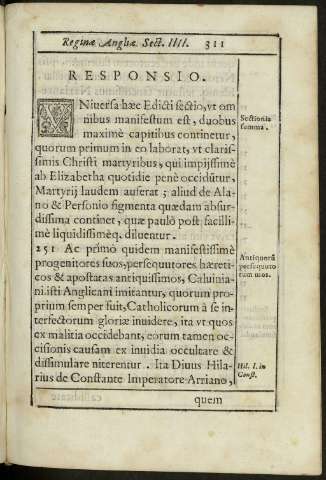 Reginæ Angliæ Sect. IIII. 311
RESPONSIO.
VNiuersa hæc Edicti sectio, vt om
nibus manifestum est, duobus
maximè capitibus continetur,
quorum primum in eo laborat, vt claris-
simis Christi martyribus, qui impijssimè
ab Elizabetha quotidie penè occidũtur,
Martyrij laudem auferat; aliud de Ala-
no & Personio figmenta quædam absur-
dissima continet, quæ paulò post facilli-
mè liquidissimèq. diluentur.
251 Ac primò quidem manifestissimè
progenitores suos, persequutores hæreti-
cos & apostatas antiquissimos, Caluinia-
ni isti Anglicani imitantur, quorum pro-
prium semper fuit, Catholicorum à se in-
terfectorum gloriæ inuidere, ita vt quos
ex malitia occidebant, eorum tamen oc-
cisionis causam ex inuidia occultare &
dissimulare niterentur. Ita Diuus Hila-
rius de Constante Imperatore Arriano,
quem
Sectionis
summa.
Antiquorũ
persequuto
rum mos.
Hil. l. in
Const.